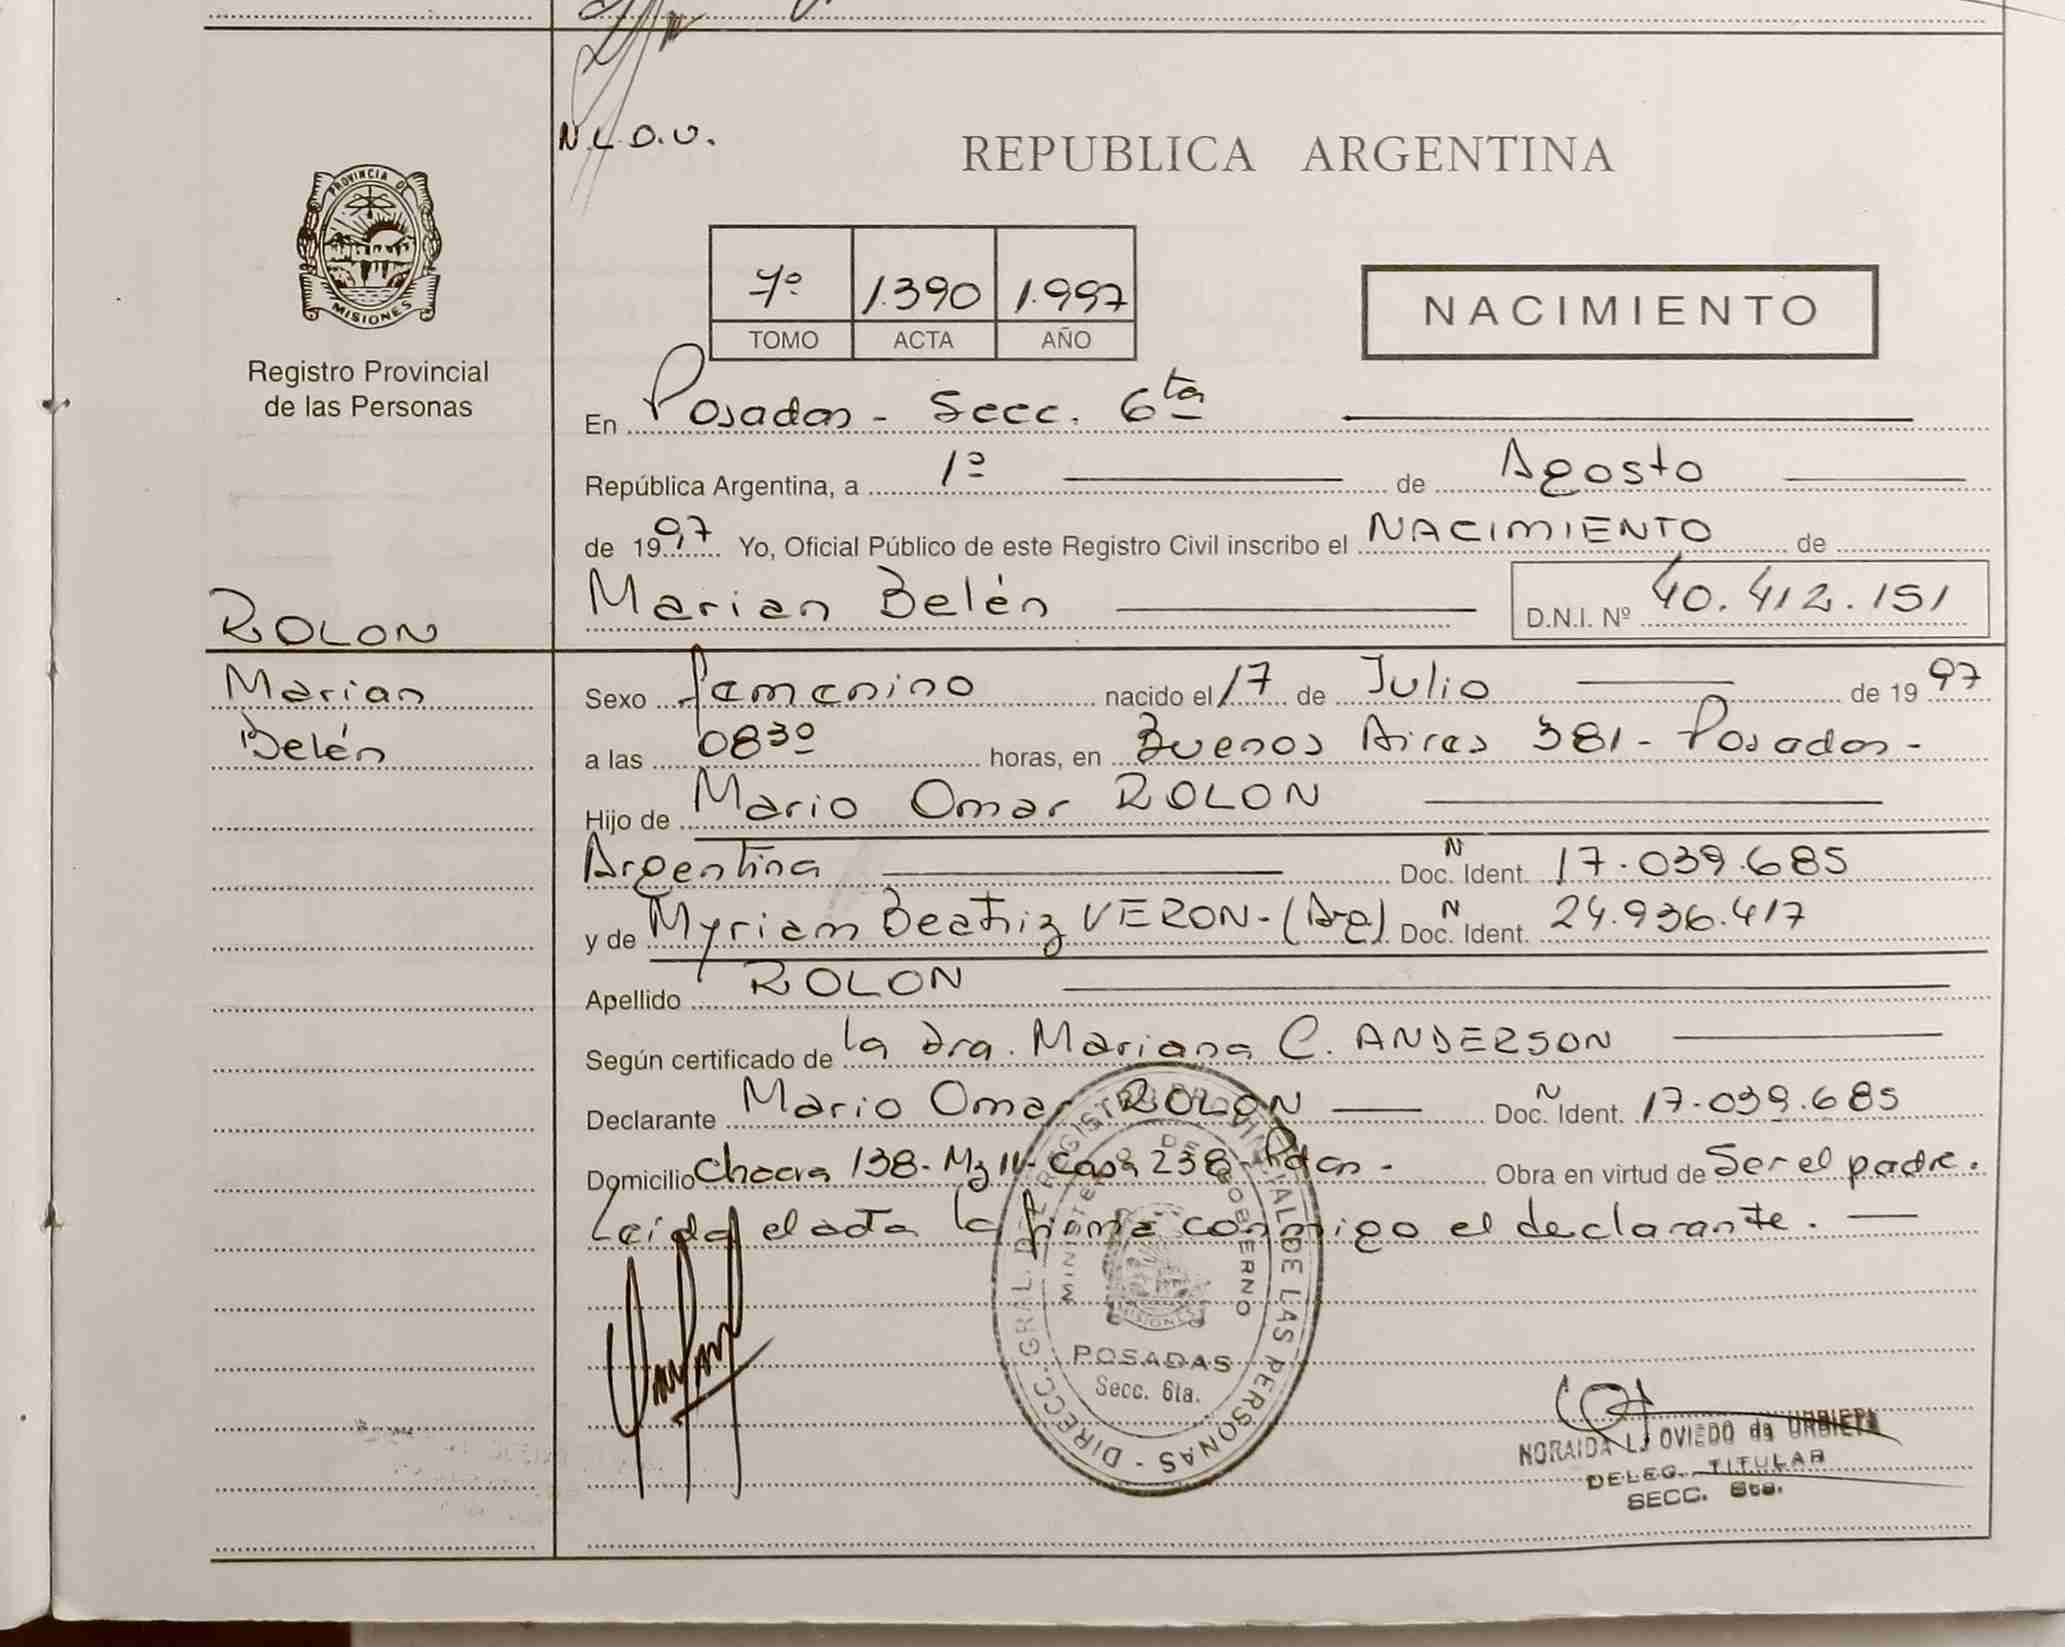 N.L.D.U.
REPUBLICA ARGENTINA
PROVINCIA DE
MISIONES
Registro Provincial
de las Personas
7º 1.390 1.997
TOMO ACTA AÑO
NACIMIENTO
En Posadas - Secc. 6ta
República Argentina, a 1º de Agosto
de 1997 Yo, Oficial Público de este Registro Civil inscribo el NACIMIENTO de
Marian Belén D.N.I. Nº 40.412.151
ROLON
Marian
Belén
Sexo femenino nacido el 17 de Julio de 1997
a las 0830 horas, en Buenos Aires 381 - Posadas -
Hijo de Mario Omar ROLON
Argentina N Doc. Ident. 17.039.685
y de Myriam Beatriz VERON - (Arg) N Doc. Ident. 24.936.417
Apellido ROLON
Según certificado de la Dra. Mariana C. ANDERSON
Declarante Mario Omar ROLON N Doc. Ident. 17.039.685
Domicilio Chacra 138 - Mz II - Casa 238 - Pdas - Obra en virtud de Ser el padre.
Leída el acta la firma conmigo el declarante.
DIRECC. GRAL. DE REGISTRO PROVINCIAL DE LAS PERSONAS
MINISTERIO DE GOBIERNO
MISIONES
POSADAS
Secc. 6ta.
NORAIDA L. OVIEDO de URBIETA
DELEG. TITULAR
SECC. 6ta.